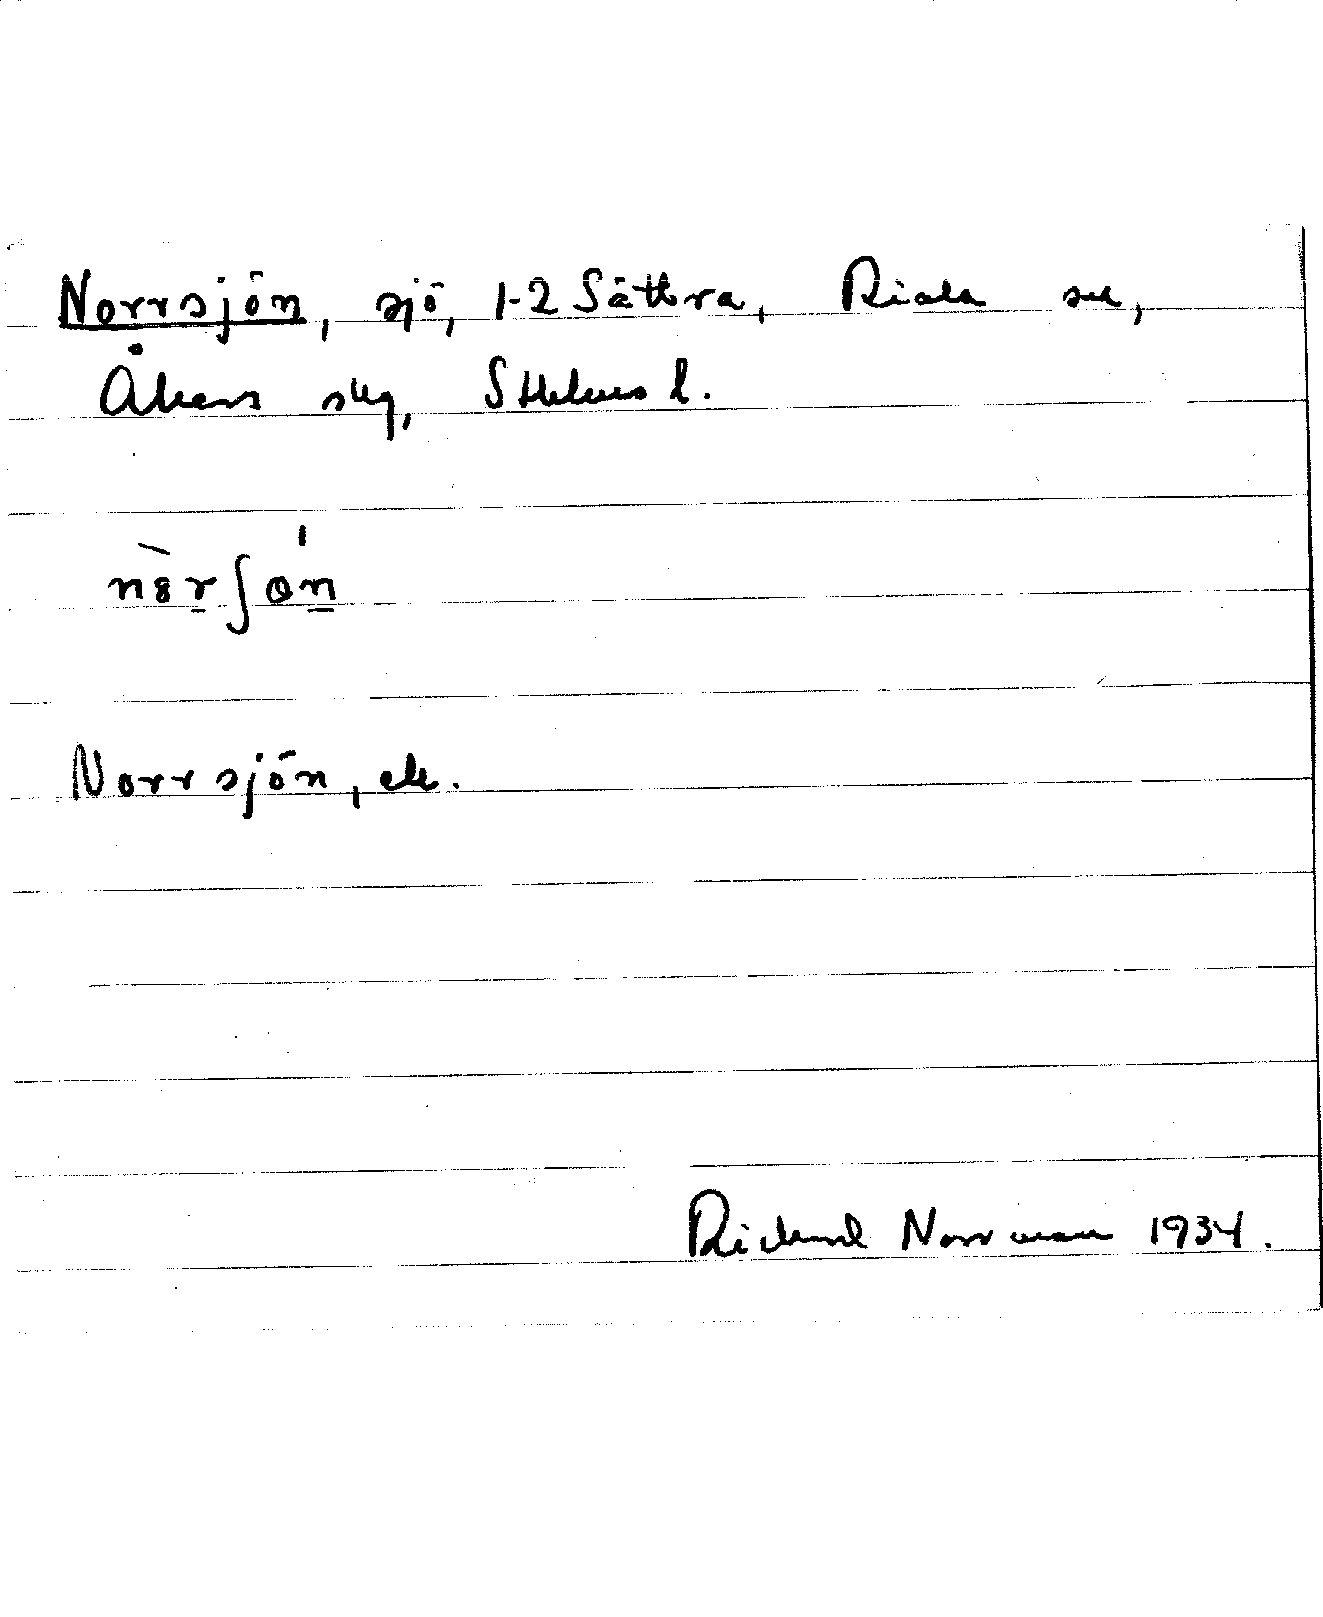 Norrsjön, sjö, 1-2 Sättra, Riala sn,
Åkers skg, Sthlms l.
Norrsjön, ek.
Rickard Norrman 1934.